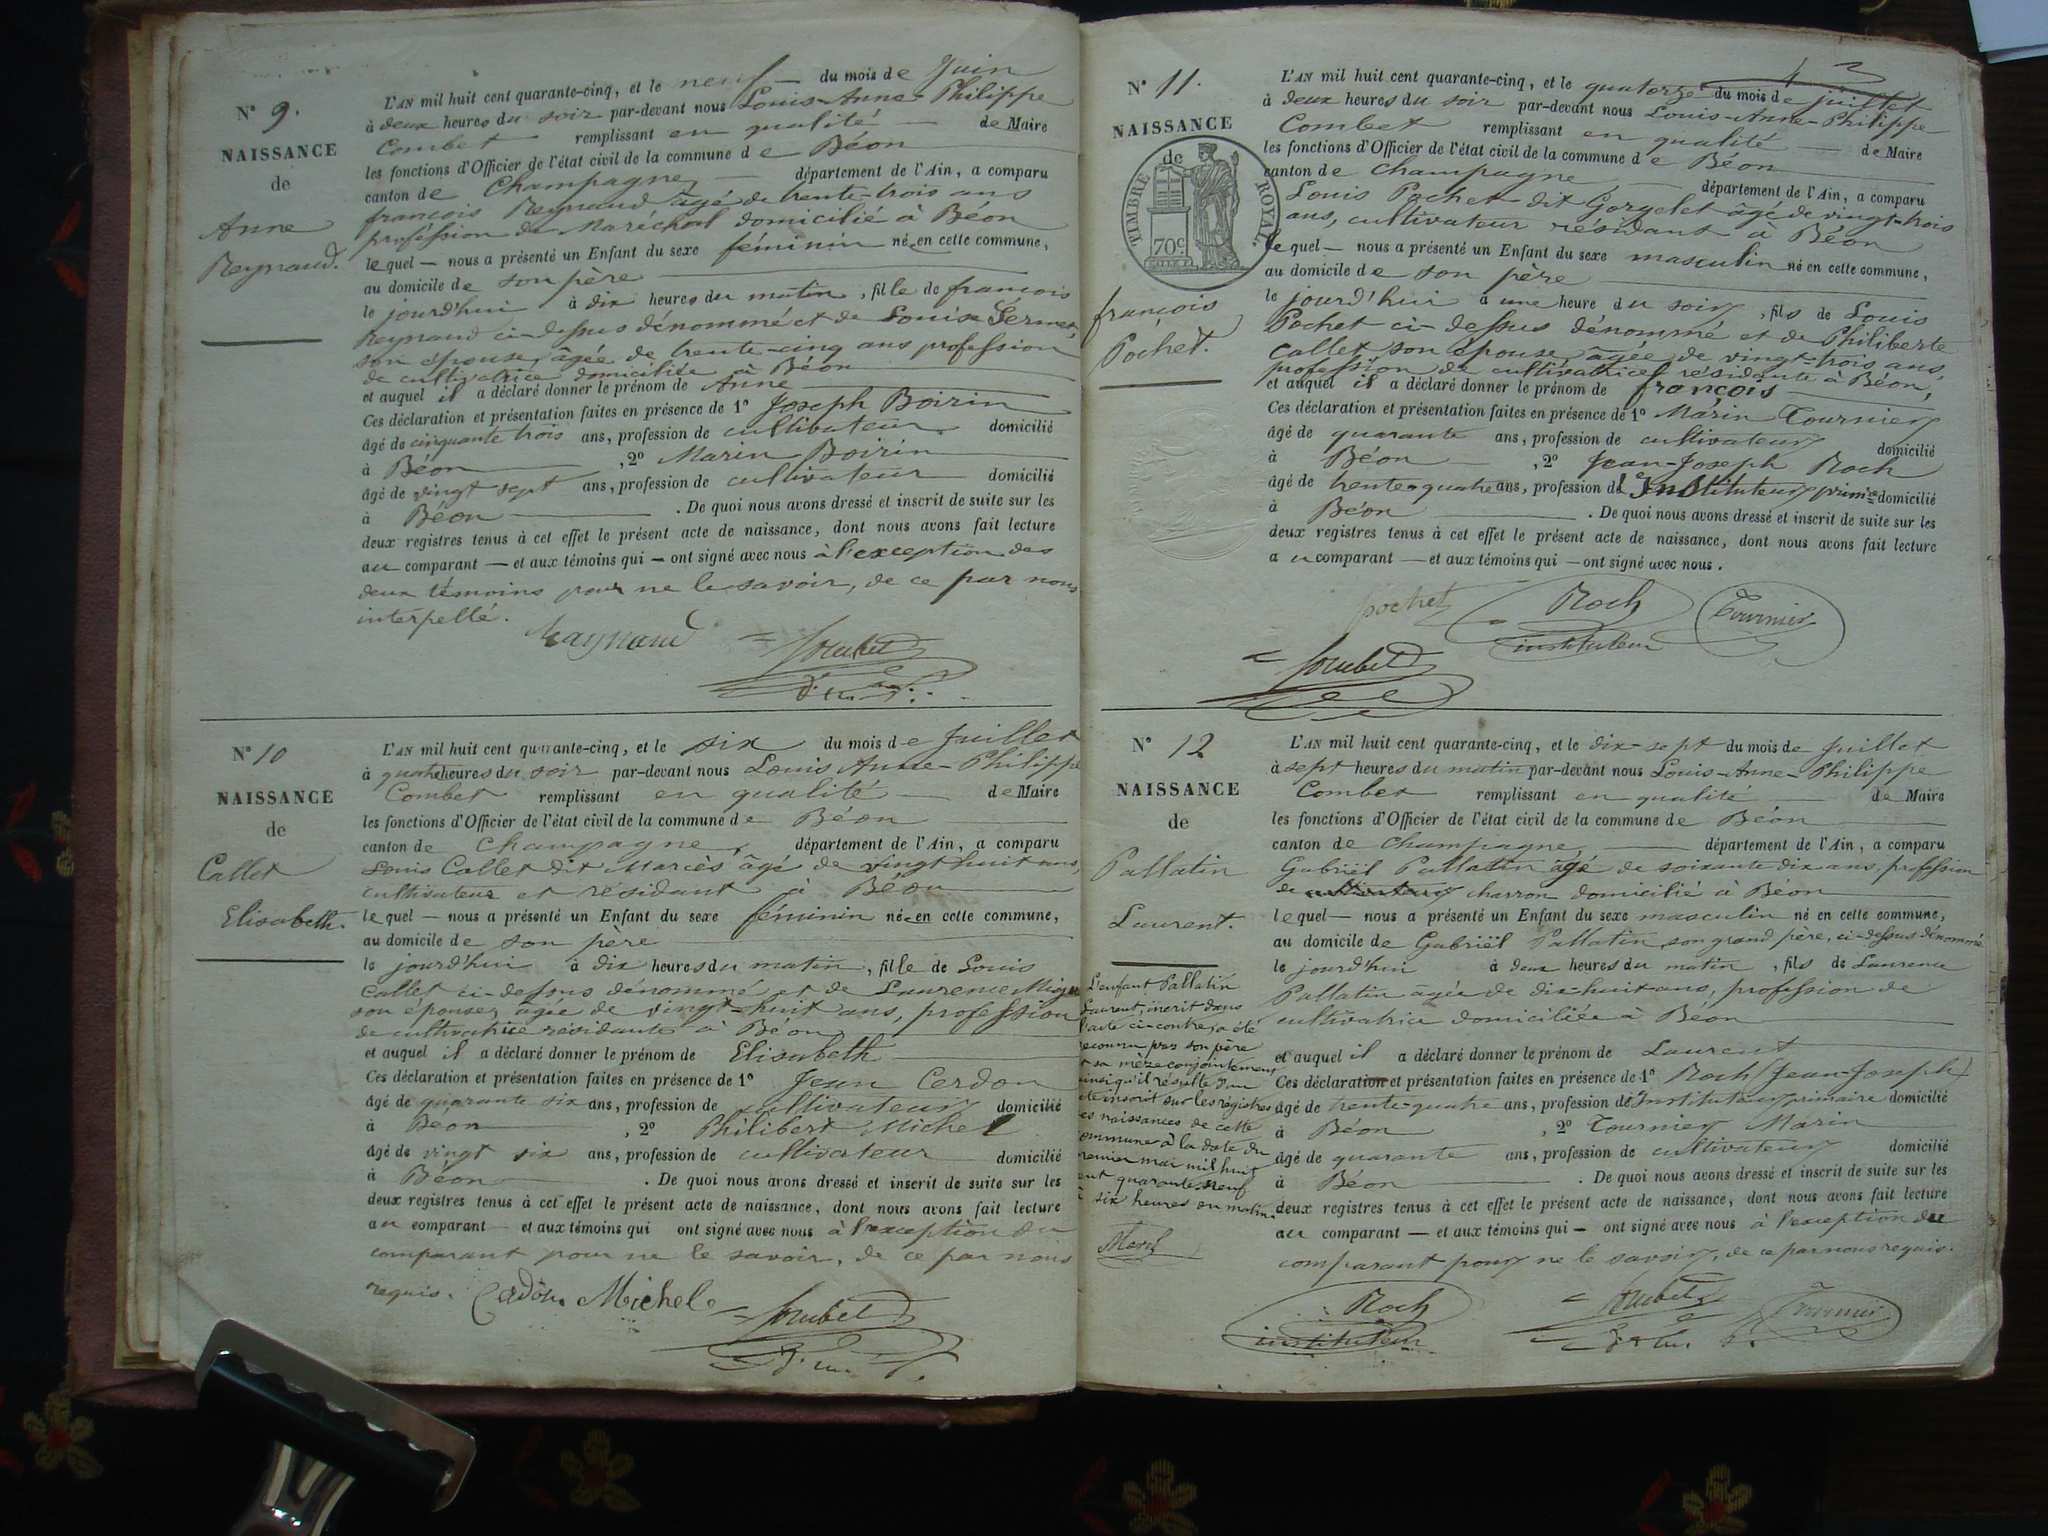 N° 9.
NAISSANCE
de
Anne
Reynaud.
L'AN mil huit cent quarante-cinq, et le neuf du mois de Juin
à deux heures du soir par-devant nous Louis-Anne-Philippe
Combet remplissant en qualité de Maire
les fonctions d'Officier de l'état civil de la commune de Béon
canton de Champagne département de l'Ain, a comparu
françois Reynaud âgé de trente-trois ans
profession de Maréchal domicilié à Béon
lequel — nous a présenté un Enfant du sexe féminin né en cette commune,
au domicile de son père
le jourd'hui à dix heures du matin, fille de françois
Reynaud ci-dessus dénommé et de Louise
son épouse, âgée de trente-cinq ans profession
de cultivatrice domiciliée à Béon
et auquel il a déclaré donner le prénom de Anne
Ces déclaration et présentation faites en présence de 1° Joseph Boirin
âgé de cinquante trois ans, profession de cultivateur domicilié
à Béon , 2° Marin Boirin
âgé de vingt sept ans, profession de cultivateur domicilié
à Béon . De quoi nous avons dressé et inscrit de suite sur les
deux registres tenus à cet effet le présent acte de naissance, dont nous avons fait lecture
au comparant — et aux témoins qui — ont signé avec nous à l'exception des
deux témoins pour ne le savoir, de ce par nous
interpellé.
Raynaud Combet
N° 10
NAISSANCE
de
Callet
Elisabeth.
L'AN mil huit cent quarante-cinq, et le six du mois de Juillet
à quatre heures du soir par-devant nous Louis Anne-Philippe
Combet remplissant en qualité de Maire
les fonctions d'Officier de l'état civil de la commune de Béon
canton de Champagne, département de l'Ain, a comparu
Louis Callet dit Mariès âgé de vingt huit ans,
cultivateur et résidant à Béon
lequel — nous a présenté un Enfant du sexe féminin né en cette commune,
au domicile de son père
le jourd'hui à dix heures du matin, fille de Louis
Callet ci-dessus dénommé et de Laurence
son épouse, âgée de vingt-huit ans, profession
de cultivatrice résidante à Béon
et auquel il a déclaré donner le prénom de Elisabeth
Ces déclaration et présentation faites en présence de 1° Jean Cerdon
âgé de quarante six ans, profession de cultivateur domicilié
à Béon , 2° Philibert Michel
âgé de vingt six ans, profession de cultivateur domicilié
à Béon . De quoi nous avons dressé et inscrit de suite sur les
deux registres tenus à cet effet le présent acte de naissance, dont nous avons fait lecture
au comparant — et aux témoins qui ont signé avec nous à l'exception du
comparant pour ne le savoir, de ce par nous
requis. Cerdon Michel Combet
N° 11.
NAISSANCE
de
TIMBRE ROYAL.
70c
françois
Pochet.
L'AN mil huit cent quarante-cinq, et le quatorze du mois de juillet
à deux heures du soir par-devant nous Louis-Anne-Philippe
Combet remplissant en qualité de Maire
les fonctions d'Officier de l'état civil de la commune de Béon
canton de Champagne département de l'Ain, a comparu
Louis Pochet dit Gorgelet âgé de vingt-trois
ans, cultivateur résidant à Béon
lequel — nous a présenté un Enfant du sexe masculin né en cette commune,
au domicile de son père
le jourd'hui à une heure du soir, fils de Louis
Pochet ci-dessus dénommé et de Philiberte
Callet son épouse, âgée de vingt-trois ans,
profession de cultivatrice, résidante à Béon,
et auquel il a déclaré donner le prénom de françois
Ces déclaration et présentation faites en présence de 1° Marin Tournier
âgé de quarante ans, profession de cultivateur domicilié
à Béon , 2° Jean-Joseph Roch
âgé de trente-quatre ans, profession d'Instituteur prim.re domicilié
à Béon . De quoi nous avons dressé et inscrit de suite sur les
deux registres tenus à cet effet le présent acte de naissance, dont nous avons fait lecture
au comparant — et aux témoins qui — ont signé avec nous.
pochet Roch Tournier
instituteur
Combet
N° 12
NAISSANCE
de
Pallatin
Laurent.
L'enfant Pallatin
Laurent, inscrit dans
l'acte ci-contre, a été
reconnu par son père
et sa mère conjointement
ainsi qu'il résulte d'un
acte inscrit sur les registres
des naissances de cette
commune à la date du
premier mai mil huit
cent quarante neuf
à six heures du matin.
L'AN mil huit cent quarante-cinq, et le dix-sept du mois de Juillet
à sept heures du matin par-devant nous Louis-Anne-Philippe
Combet remplissant en qualité de Maire
les fonctions d'Officier de l'état civil de la commune de Béon
canton de Champagne, département de l'Ain, a comparu
Gabriël Pallatin âgé de soixante dix ans, profession
de charron domicilié à Béon
lequel — nous a présenté un Enfant du sexe masculin né en cette commune,
au domicile de Gabriël Pallatin son grand père, ci-dessus dénommé
le jourd'hui à deux heures du matin, fils de Laurence
Pallatin âgée de dix-huit ans, profession de
cultivatrice domiciliée à Béon
et auquel il a déclaré donner le prénom de Laurent
Ces déclaration et présentation faites en présence de 1° Roch (Jean-Joseph)
âgé de trente-quatre ans, profession d'Instituteur primaire domicilié
à Béon , 2° Tournier Marin
âgé de quarante ans, profession de cultivateur domicilié
à Béon . De quoi nous avons dressé et inscrit de suite sur les
deux registres tenus à cet effet le présent acte de naissance, dont nous avons fait lecture
au comparant — et aux témoins qui — ont signé avec nous à l'exception du
comparant pour ne le savoir, de ce par nous requis.
Roch Combet Tournier
instituteur